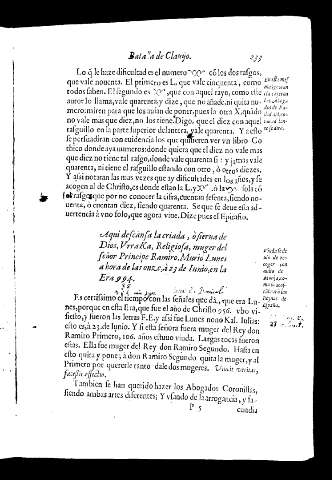 Batalla de Clauijo. 233
Lo q̃ le haze dificultad es el numero cõ los dos rasgos,
que vale nouenta. El primero es L. que vale cinquenta, como
todos saben. El segundo es que con aquel rayo, como este
autor lo llama, vale quarenta y diez, que no añade, ni quita nu-
mero; miren para que los auian de poner, pues la otra X, quãdo
no vale mas que diez, no los tiene. Digo, que el diez con aquel
rasguillo en la parte superior delantera, vale quarenta. Y a esto
se persuadiran con euidencia los que quisieren ver vn libro Go
thico donde aya numeros: donde quiera que el diez no vale mas
que diez no tiene tal rasgo, donde vale quarenta si: y jamas vale
quarenta, ni tiene el rasguillo estando con otro, ò otros diezes.
Y assi notaran las mas vezes que ay dificultades en los años, y se
acogen al de Christo, es donde estan la L. y ò la sola cõ
el rasgo: que por no conocer la cifra, cuentan sesenta, siendo no-
uenta, ò cuentan diez, siendo quarenta. Se que se deue esta ad-
uertencia à vno solo, que agora viue. Dize pues el Epitafio.
Aqui descansa la criada, ò sierua de
Dios, Vrraka, Religiosa, muger del
señor Principe Ramiro. Murio Lunes
a hora de las onze, à 23 de Iunio, en la
Era 994.
Es certissimo el tiempo con las señales que dà, que era Lu-
nes, porque en esta Era, que fue el año de Christo 956. vbo vi-
siesto, y fueron las letras F.E. y assi fue Lunes nono Kal. Iulias:
esto es, à 23. de Iunio. Y si esta señora fuera muger del Rey don
Ramiro Primero, 106. años estuuo viuda. Largas tocas fueron
essas. Ella fue muger del Rey don Ramiro Segundo. Hasta en
esto quita y pone; a don Ramiro Segundo quita la muger, y al
Primero por quererle tanto dale dos mugeres.
Tambien se han querido hazer los Abogados Coronistas,
siendo ambas artes diferentes; Y vsando de la arrogancia, y fa-
P 5 cundia